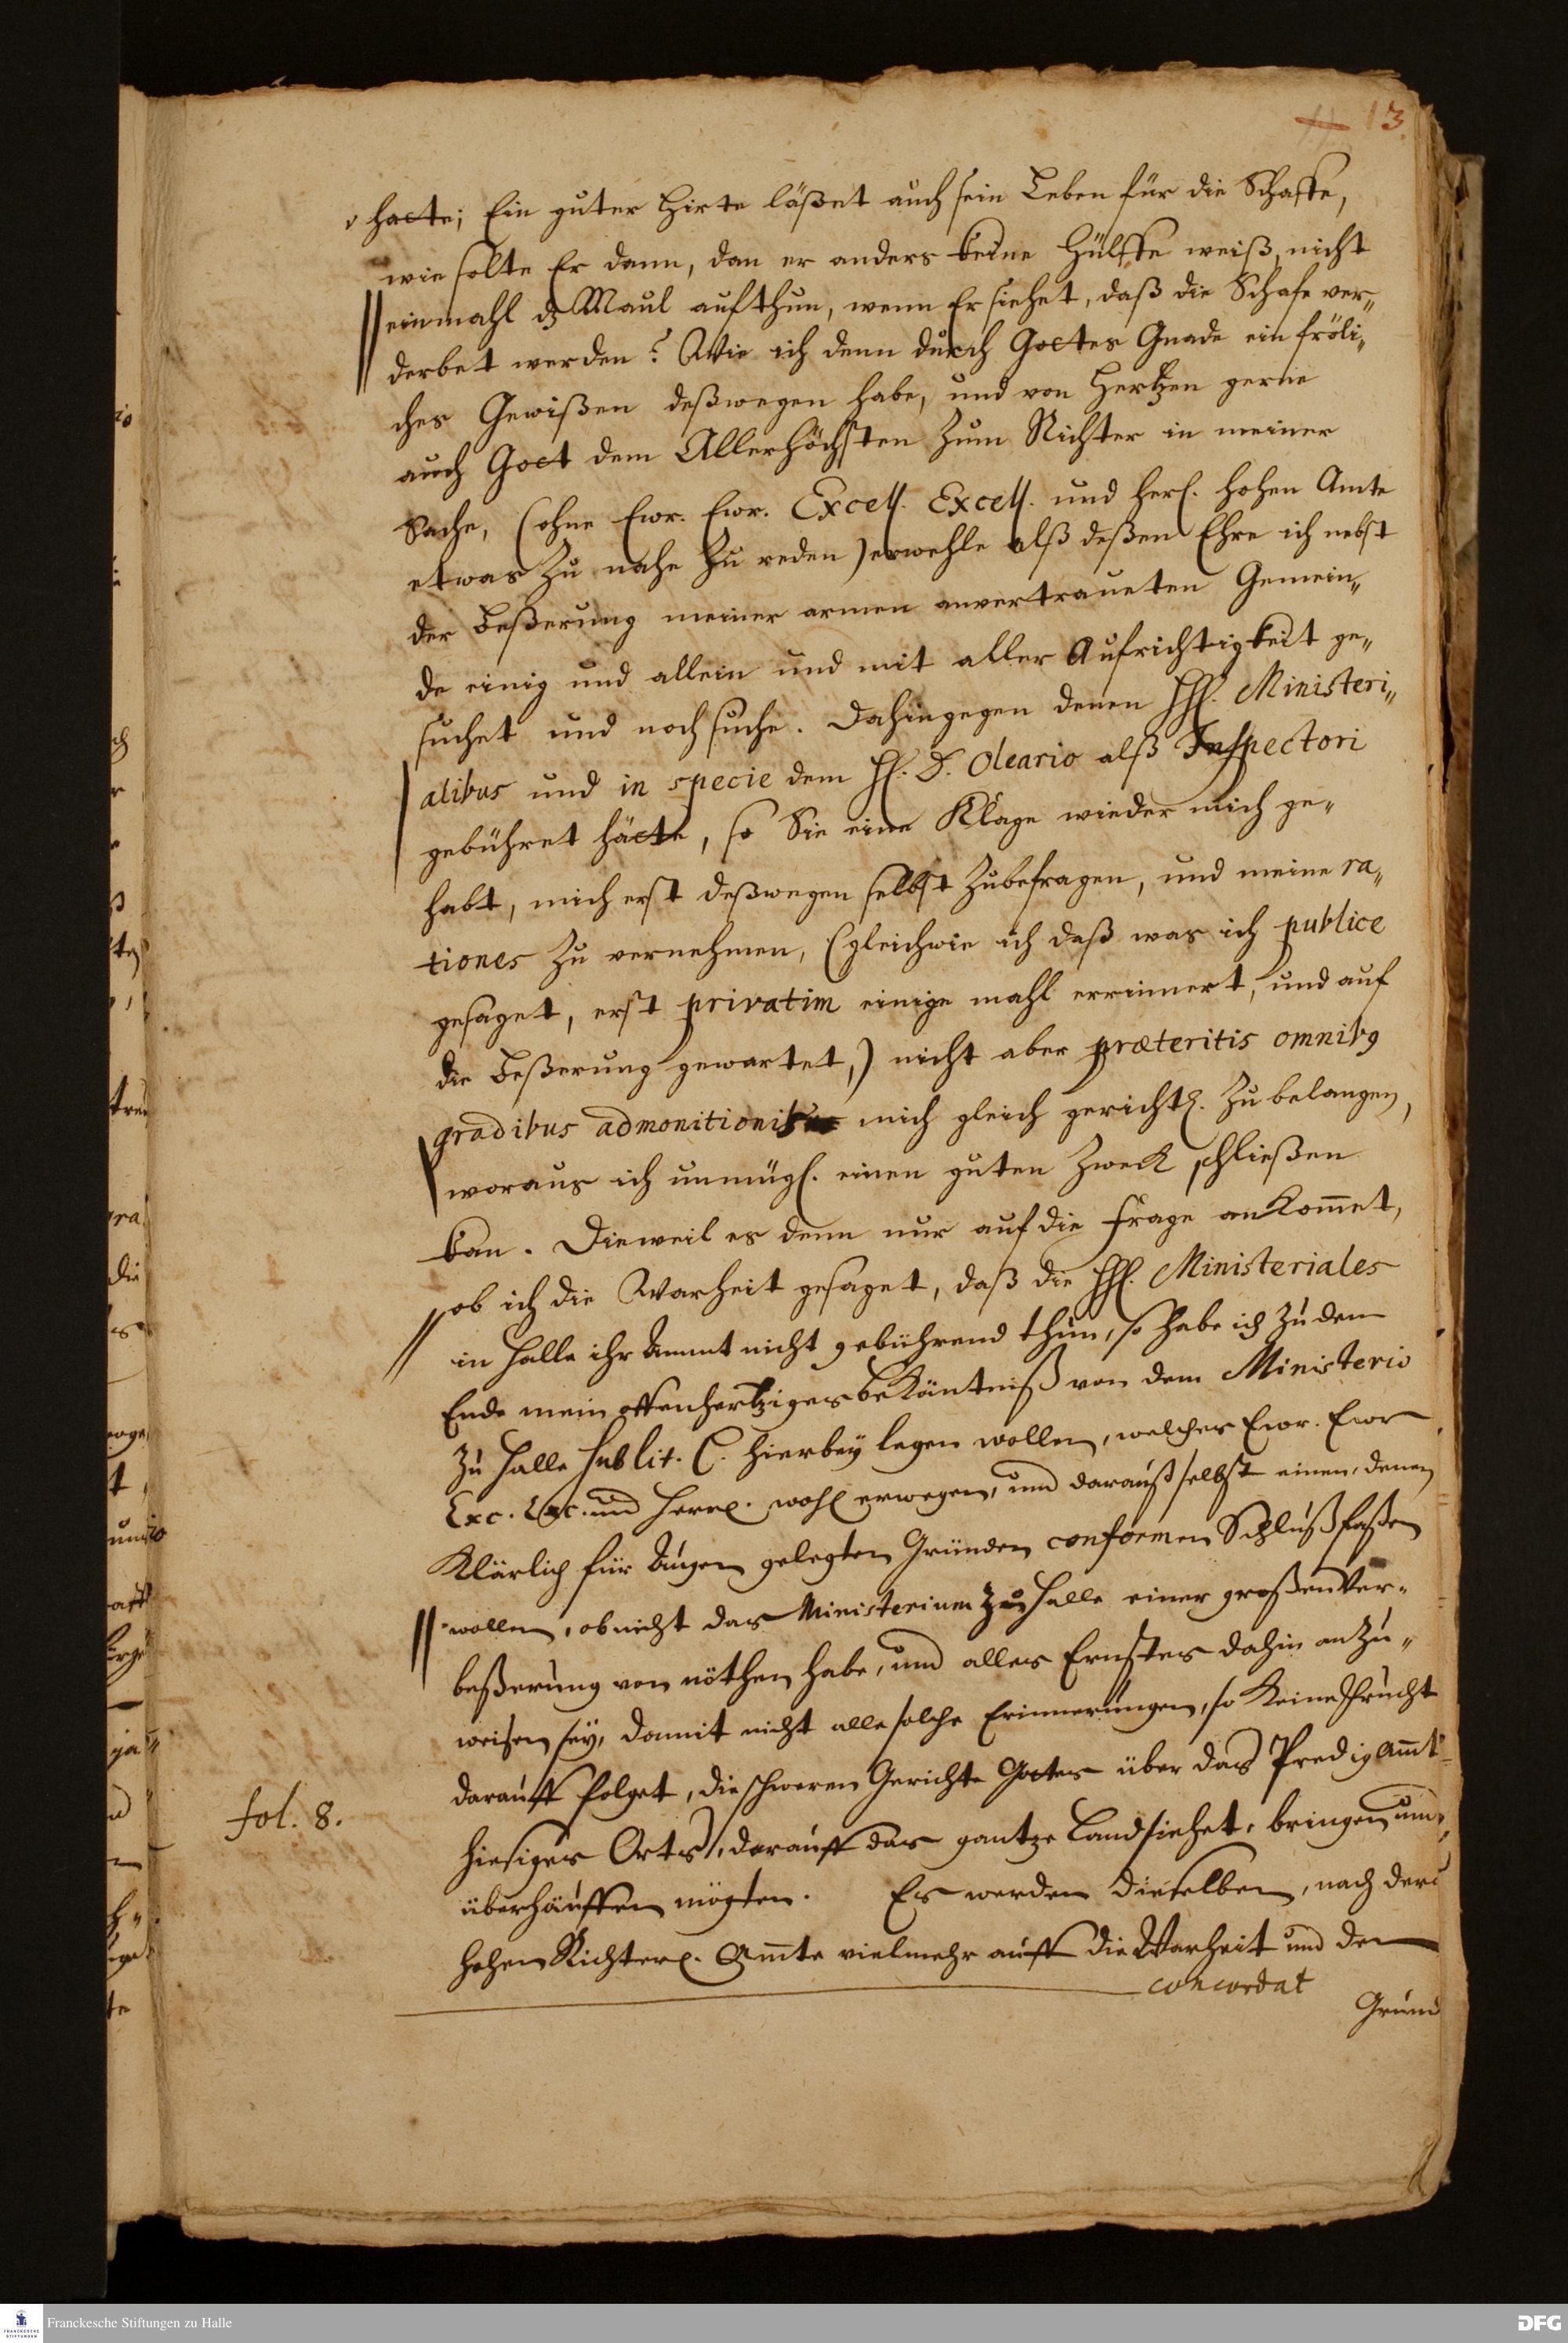 13.
hatte; Ein guter Hirte läßet auch sein Leben für die Schaffe,
wie solte Er dann, dan er anders keine Hülffe weiß, nicht
einmahl dz Maul aufthun, wenn Er siehet, daß die Schafe ver„
derbet werden? Wie ich denn durch Gottes Gnade ein fröli„
ches Gewißen deßwegen habe, und von Hertzen gerne
auch Gott dem Allerhöchsten zum Richter in meiner
Sache, (ohne Ewr. Ewr. Excell. Excell. und Herl. hohen Amte
etwas zu nahe zu reden) erwehle alß deßen Ehre ich nebst
der Beßerung meiner armen anvertraueten Gemein„
de einig und allein und mit aller Aufrichtigkeit ge„
suchet und noch suche. Dahingegen denen HH. Ministeri„
alibus und in specie dem H. D. Oleario alß Inspectori
gebühret hätte, so Sie eine Klage wieder mich ge„
habt, mich erst deßwegen selbst zubefragen, und meine ra„
tiones zu vernehmen, (gleichwie ich daß was ich publice
gesaget, erst privatim einige mahl errinnert, und auf
die Beßerung gewartet,) nicht aber præteritis omnib9
gradibus admonitionis mich gleich gerichtl. zu belangen,
woraus ich unmügl. einen guten Zweck schließen
kan. Dieweil es denn nur auf die Frage ankom̄et,
ob ich die Warheit gesaget, daß die HH. Ministeriales
in Halle ihr Ammt nicht gebührend thun, so habe ich zu dem
Ende mein offenhertziges bekäntniß von dem Ministerio
zu Halle sub lit. C. hierbey legen wollen, welches Ewr. Ewr
Exc. Exc. und Herrl. wohl erwegen, und darauß selbst einen, denen
klärlich für Augen gelegten Gründen conformen Schluß faßen
wollen, ob nicht das Ministerium zu Halle einer großen Ver„
beßerung von nöthen habe, und alles Ernstes dahin anzu„
weisen sey, damit nicht alle solche Erinnerungen, so keine Frucht
darauff folget, die schweren Gerichte Gottes über das Predigam̄t
fol. 8.
hiesiges Orts, darauff das gantze Land siehet, bringen und
überhäuffen mögten. Es werden dieselben, nach dero
hohen Richterl. Am̄te vielmehr auff die Warheit und den
concordat
Grund
Franckesche Stiftungen zu Halle
DFG